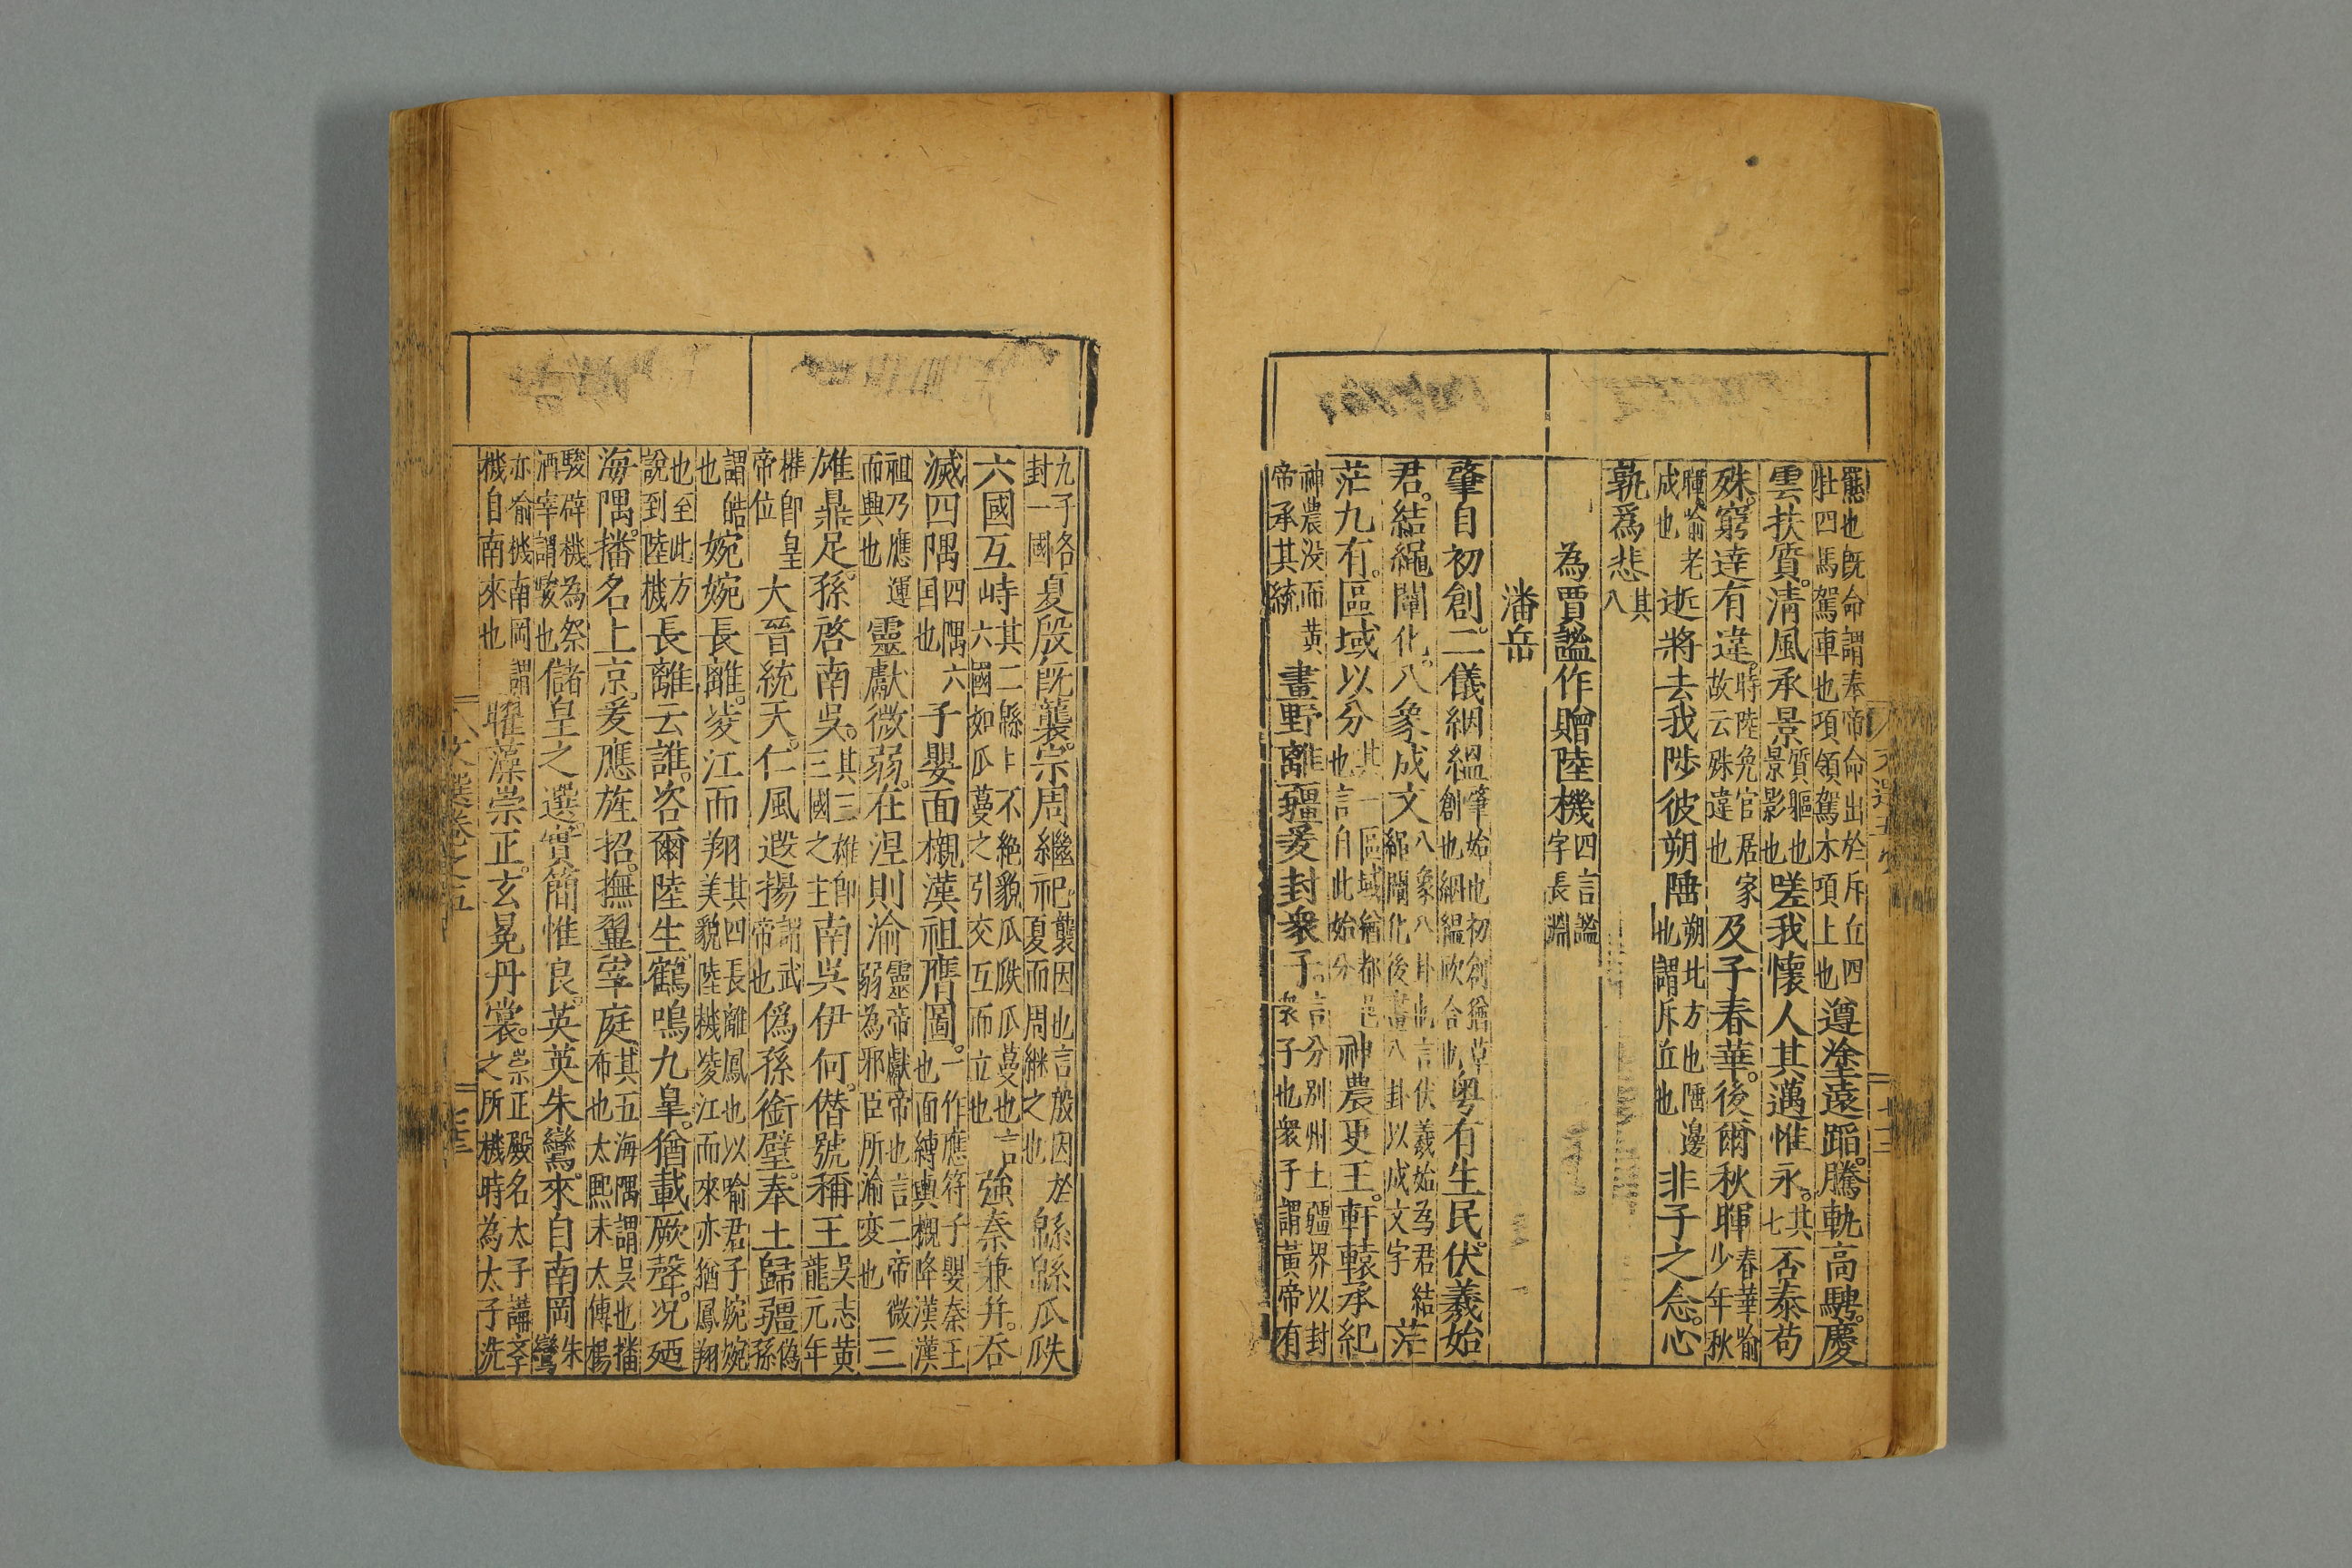 羆也既命謂奉帝命出於斥丘四
牡四馬駕車也項領駕木項上也
遵塗遠蹈。騰軌高騁。慶
雲扶質。清風承景
質軀也
景影也
嗟我懷人其邁惟永。
其七
否泰苟
殊。窮達有違。
時陸免官居家
故云殊違也
及子春華。後爾秋暉
春華喻
少年秋
暉喻老
成也
逝將去我陟彼朔陲
朔北方也陲邊
也謂斥丘也
非子之念。心
孰爲悲
其八
為賈謐作贈陸機
四言謐
字長淵
潘岳
肇自初創。二儀絪縕
肇始也初創猶草
創也絪縕欣合也
粵有生民。伏羲始
君。結繩闡化。八象成文
八象八卦也言伏羲始為君結
繩闡化後畫八卦以成文字
茫
茫九有。區域以分
其一區域猶都邑
也言自此始分
神農更王。軒轅承紀
神農没而黄
帝承其統
畫野離疆爰封衆子
言分别州土疆界以封
衆子也衆子謂黃帝有
九子各
封一國
夏殷既襲。宗周繼祀。
襲因也言殷因於
夏而周継之也
緜緜瓜瓞
六國互峙
其二緜緜不絶貌瓜瓞瓜蔓也言
六國如瓜蔓之引交互而立也
強秦兼并。吞
滅四隅
四隅六
国也
子嬰面櫬漢祖膺圖。
一作應符子嬰秦王
也面縛輿櫬降漢漢
祖乃應運
而興也
靈獻微弱。在涅則渝
靈帝獻帝也言二帝微
弱為邪臣所渝変也
三
雄鼎足。孫啓南吳。
其三三雄即
三國之主
南吳伊何。僣號稱王
吳志黄
龍元年
權即皇
帝位
大晉統天。仁風遐揚
謂武
帝也
僞孫銜璧。奉土歸疆
偽孫
謂皓
也
婉婉長離。凌江而翔
其四長離鳳也以喻君子婉婉
美貌陸機凌江而來亦猶鳳翔
也至此方
説到陸機
長離云誰。咨爾陸生鶴鳴九皐。猶載厥聲。况廼
海隅。播名上京。爰應旌招。撫翼宰庭
其五海隅謂吳也播
布也太熙末太傅楊
駿辟機為祭
酒宰謂駿也
儲皇之選。實簡惟良。英英朱鸞。來自南岡
朱鸞
亦喻機南岡謂
機自南來也
曜藻崇正。玄冕丹裳。
崇正殿名太子講學
之所機時為太子洗
文選卷之五